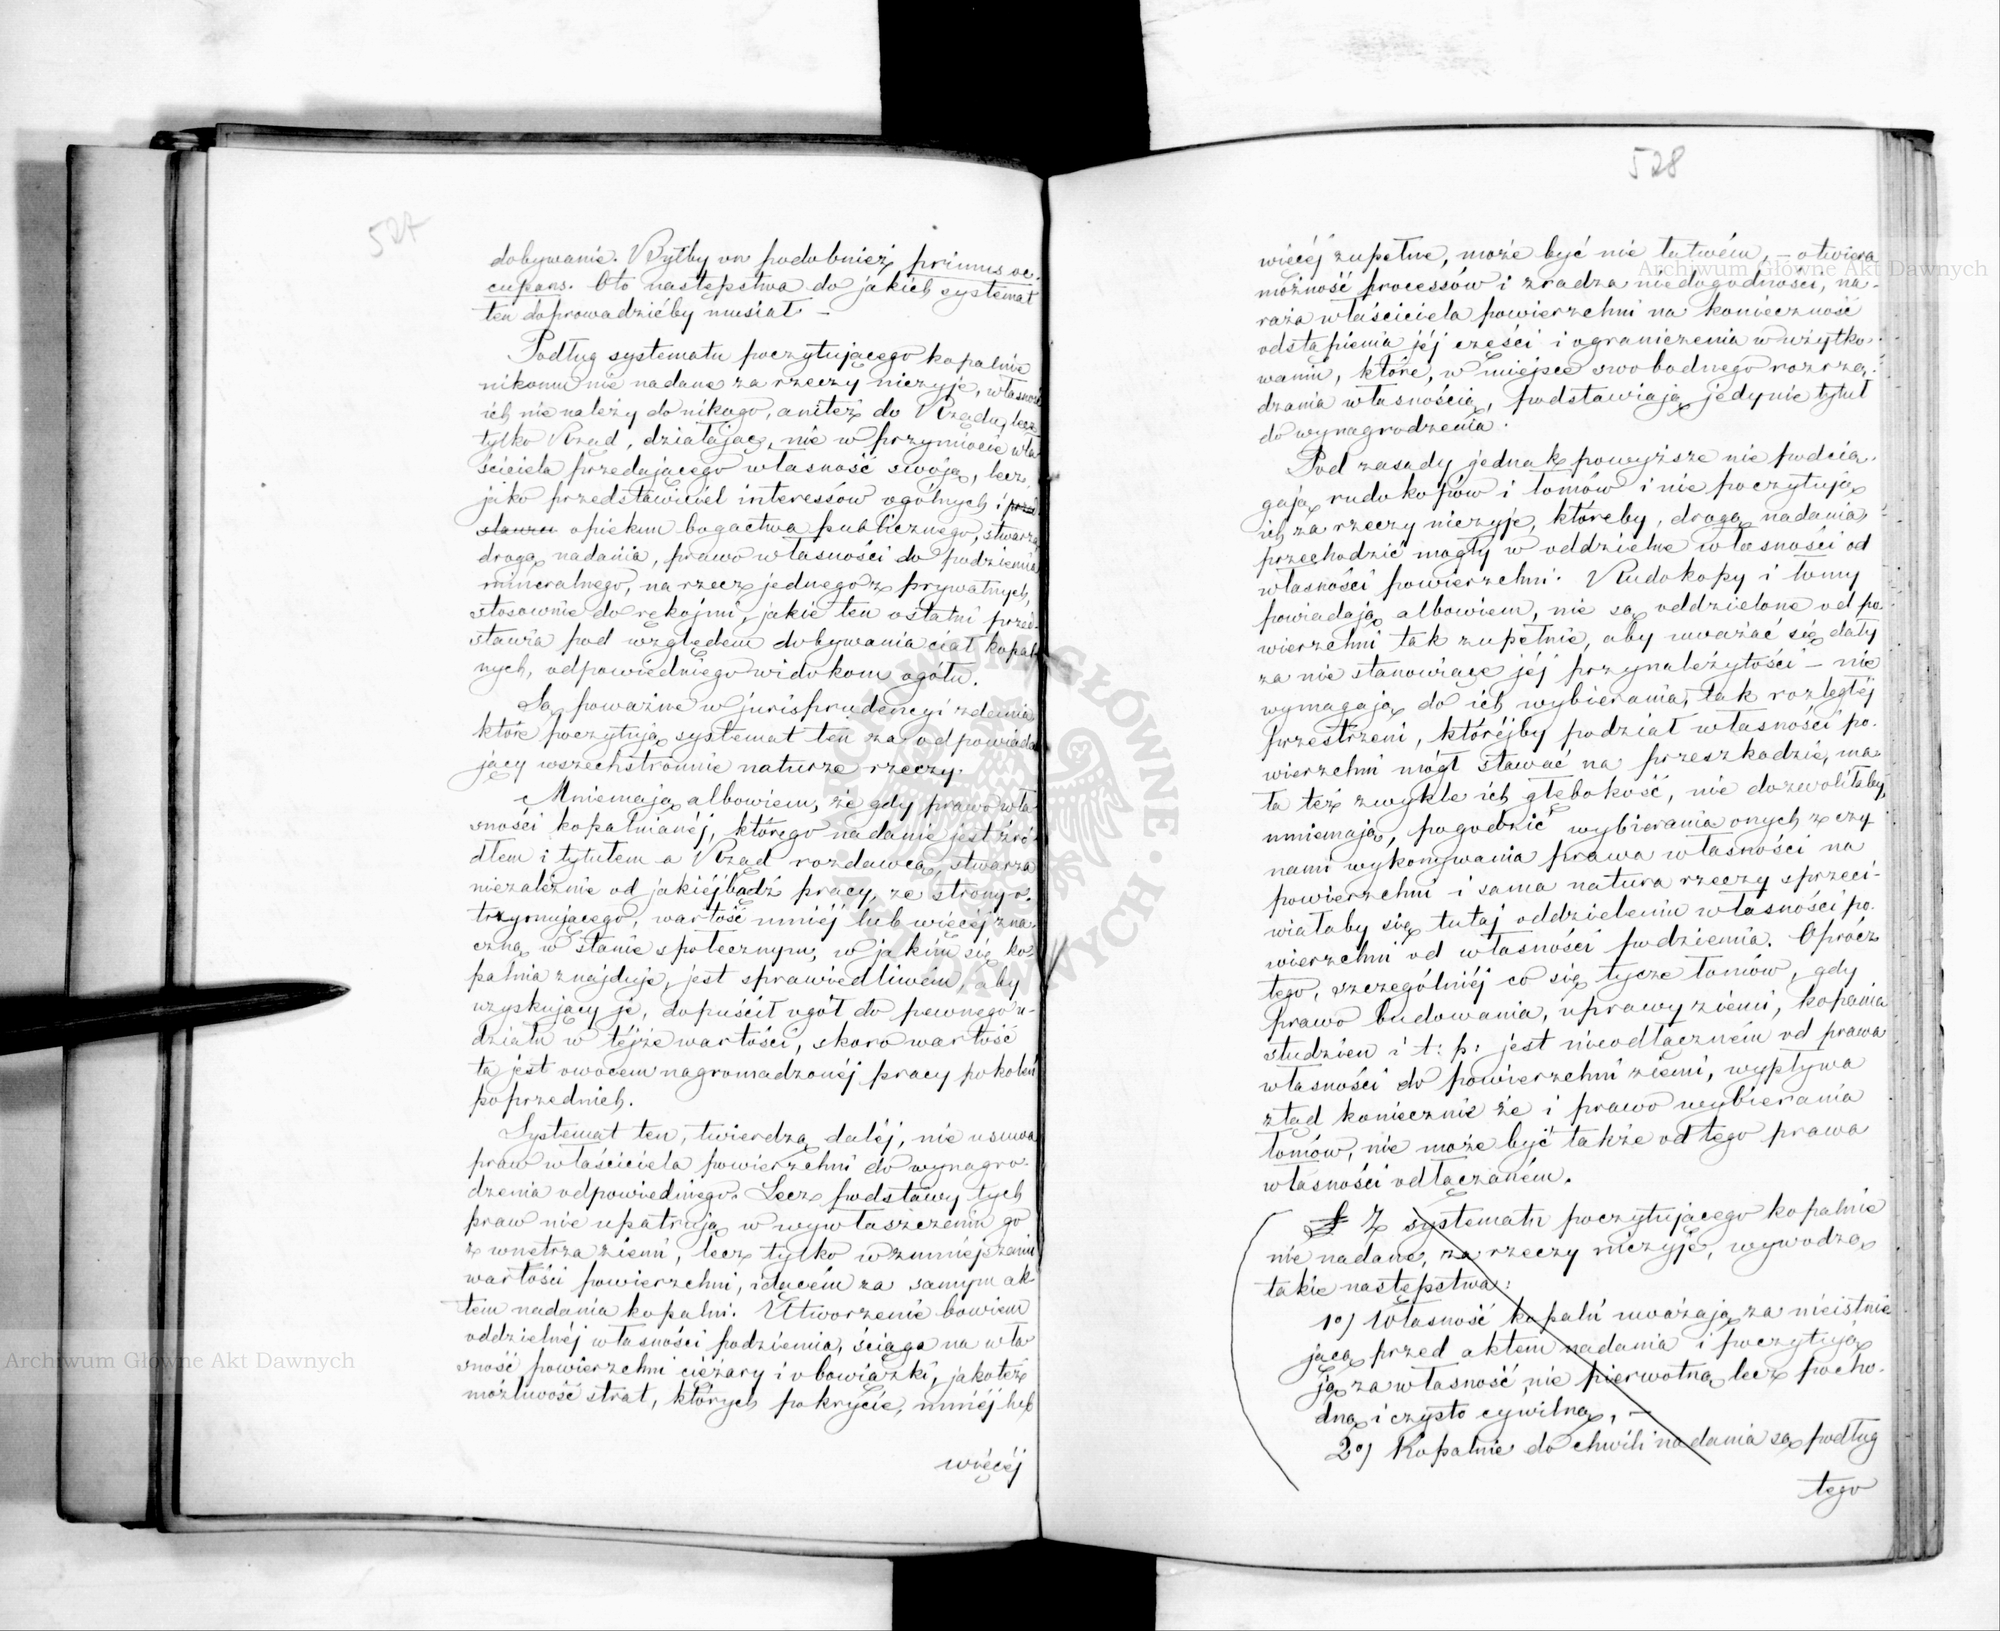 527
dobywanie. Byłby on podobnież primus oc-
cupans. Oto następstwa do jakich systemat
ten doprowadzićby musiał —
Podług systematu poczytującego kopalnie
nikomu nie nadane za rzeczy niczyje, własność
ich nie należy do nikogo, aniteż do Rządu, lecz
tylko Rząd, działając, nie w przymiocie wła
ściciela przedającego własność swoją, lecz,
jako przedstawiciel interessów ogólnych i
opiekun bogactwa publicznego, stwarza
drogą nadania, prawo własności do podziemia
mineralnego, na rzecz jednego z prywatnych,
stosownie do rękojmi, jakie ten ostatni przed-
stawia pod względem dobywania ciał kopal
nych, odpowiedniego widokom ogółu.
Są poważne w jurisprudencyi zdania
które poczytują systemat ten za odpowiada
jący wszechstronnie naturze rzeczy.
Mniemają albowiem, że gdy prawo wła
sności kopalnianéj, którego nadanie jest źró-
dłem i tytułem a Rząd rozdawcą, stwarza
niezależnie od jakiéjbądź pracy, ze strony o-
trzymującego, wartość mniéj lub więcéj zna
czną w stanie społecznym, w jakim się ko-
palnia znajduje, jest sprawiedliwém, aby
uzyskujący je, dopuścił ogół do pewnego u-
działu w téjże wartości, skoro wartość
ta jest owocem nagromadzonéj pracy pokoleń
poprzednich.
Systemat ten, twierdzą daléj, nie usuwa
praw właściciela powierzchni do wynagro-
dzenia odpowiedniego. Lecz podstawy tych
praw nie upatrują w wywłaszczeniu go
z wnętrza ziemi, lecz tylko w zmniejszeniu
wartości powierzchni, idącém za samym ak-
tem nadania kopalni. Utworzenie bowiem
oddzielnéj własności podziemia, ściąga na wła
sność powierzchni ciężary i obowiązki, jakoteż
możliwość strat, których pokrycie, mniéj lub
więcéj
528
więcéj zupełne, może być nie łatwém, — otwiera
możność processów i zradza niedogodności, na-
raża właściciela powierzchni na konieczność
odstąpienia jéj części i ograniczenia w użytko-
waniu, które, w miejsce swobodnego rozrzą-
dzania własnością, podstawiają jedynie tytuł
do wynagrodzenia.
Pod zasady jednak powyższe nie podcią-
gają rudokopów i łomów i nie poczytują
ich za rzeczy niczyje, któreby, drogą nadania
przechodzić mogły w oddzielne własności od
własności powierzchni. Rudokopy i łomy
powiadają albowiem, nie są oddzielone od po-
wierzchni tak zupełnie, aby uważać się dały
za nie stanowiące jéj przynależytości — nie
wymagają do ich wybierania, tak rozległéj
przestrzeni, któréjby podział własności po-
wierzchni mógł stawać na przeszkodzie, ma-
ła też zwykle ich głębokość, nie dozwoliłaby,
mniemają, pogodzić wybierania onych z czy
nami wykonywania prawa własności na
powierzchni i sama natura rzeczy sprzeci-
wiałaby się tutaj oddzieleniu własności po-
wierzchni od własności podziemia. Oprócz
tego, szczególniéj co się tycze łomów, gdy
prawo budowania, uprawy ziemi, kopania
studzien i t: p: jest nieodłączném od prawa
własności do powierzchni ziemi, wypływa
ztąd koniecznie że i prawo wybierania
łomów, nie może być także od tego prawa
własności odłączaném.
Z systematu poczytującego kopalnie
nie nadane, za rzeczy niczyje, wywodzą
takie następstwa:
1o) Własność kopalń uważają za nieistnie
jącą przed aktem nadania i poczytują
ją za własność nie pierwotną lecz pocho-
dną i czysto cywilną, —
2o) Kopalnie do chwili nadania są podług
tego
Archiwum Główne Akt Dawnych
Archiwum Główne Akt Dawnych